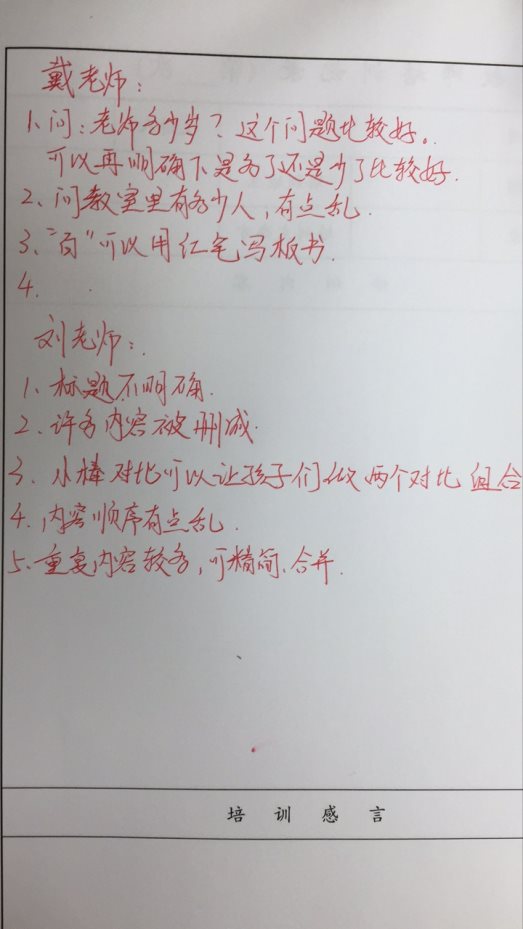 戴老师：
1、问：老师多少岁？这个问题比较好。
可以再明确下是多了还是少了比较好.
2、问教室里有多少人，有点乱.
3、“百”可以用红笔写板书.
4.
刘老师：
1、标题不明确.
2、许多内容被删减.
3、小棒对比可以让孩子们做两个对比组合
4、内容顺序有点乱.
5、重复内容较多，可精简、合并.
培训感言